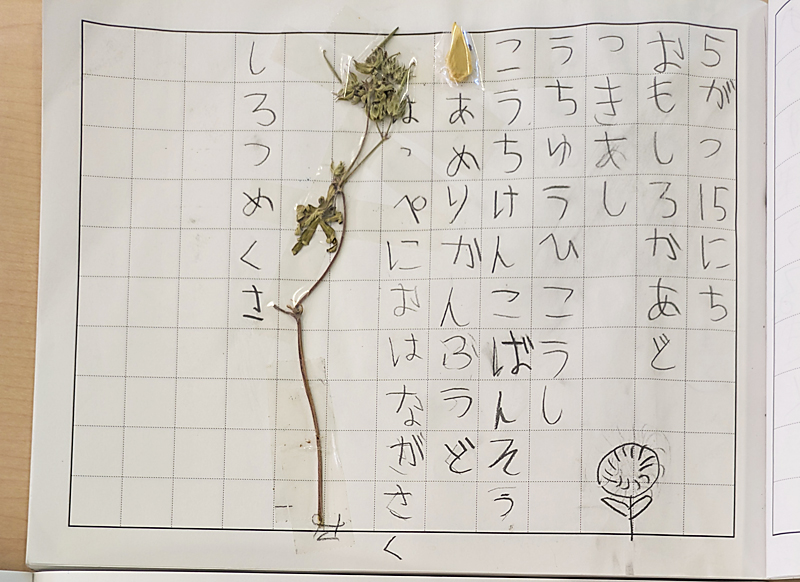 5がつ15にち
おもしろかあど
つきあし
うちゅうひこうし
こうちけんこばんそう
あめりかんぶうど
におはながさく
しろつめくさ